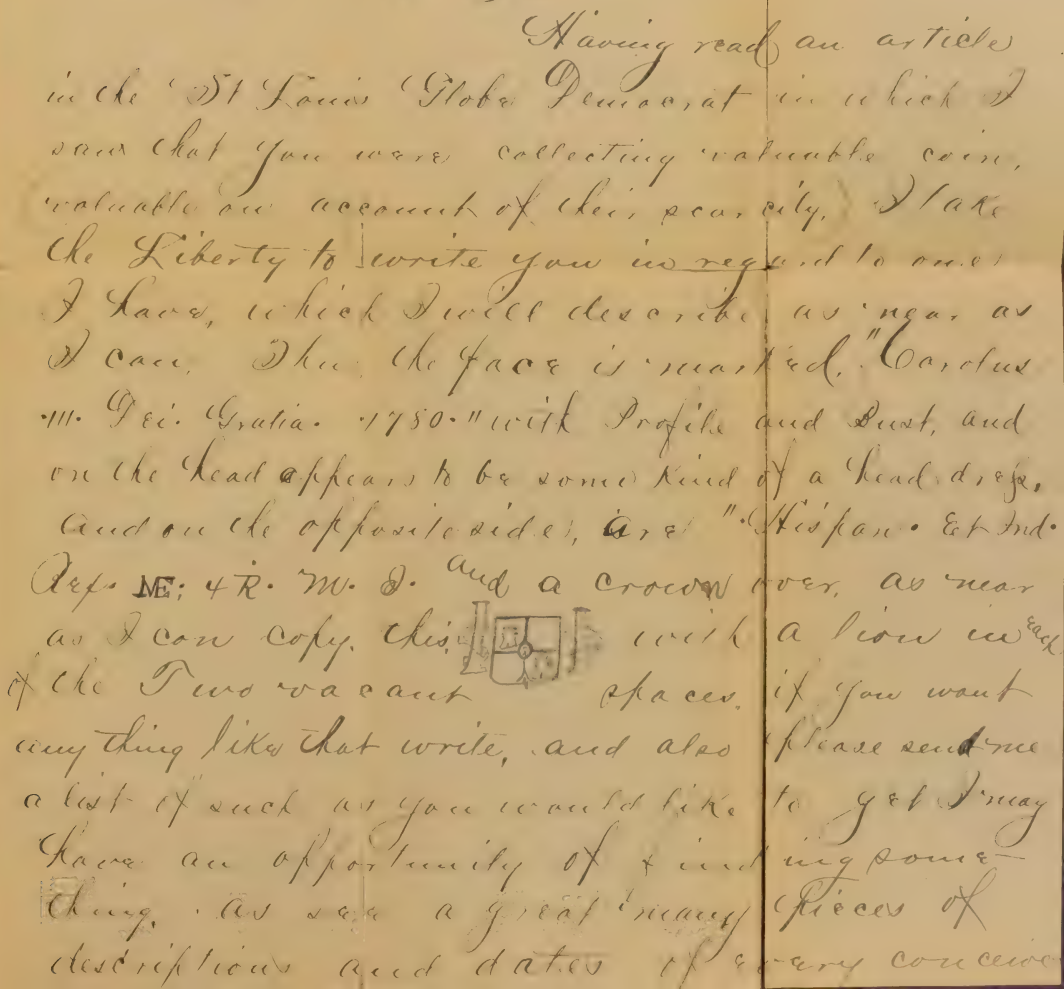 Having read an article
in the St Louis Globe Democrat in which I
saw that you were collecting valuable coin,
valuable on account of their scarcity, I take
the Liberty to write you in regard to one
I have, which I will describe as near as
I can. Thu. the face is marked, "Carolus
·III· Dei· Gratia· 1780·" with Profile and Bust, and
on the head appears to be some kind of a head dress,
and on the opposite side, are "·Hispan· Et Ind·
Rex· ME; 4 R· M· J· and a crown over, as near
as I can copy, this. with a lion in each
of the Two vacant spaces. if you want
any thing like that write, and also please send me
a list of such as you would like to get I may
have an opportunity of finding some-
thing, as see a great many pieces of
descriptions and dates of every conceive